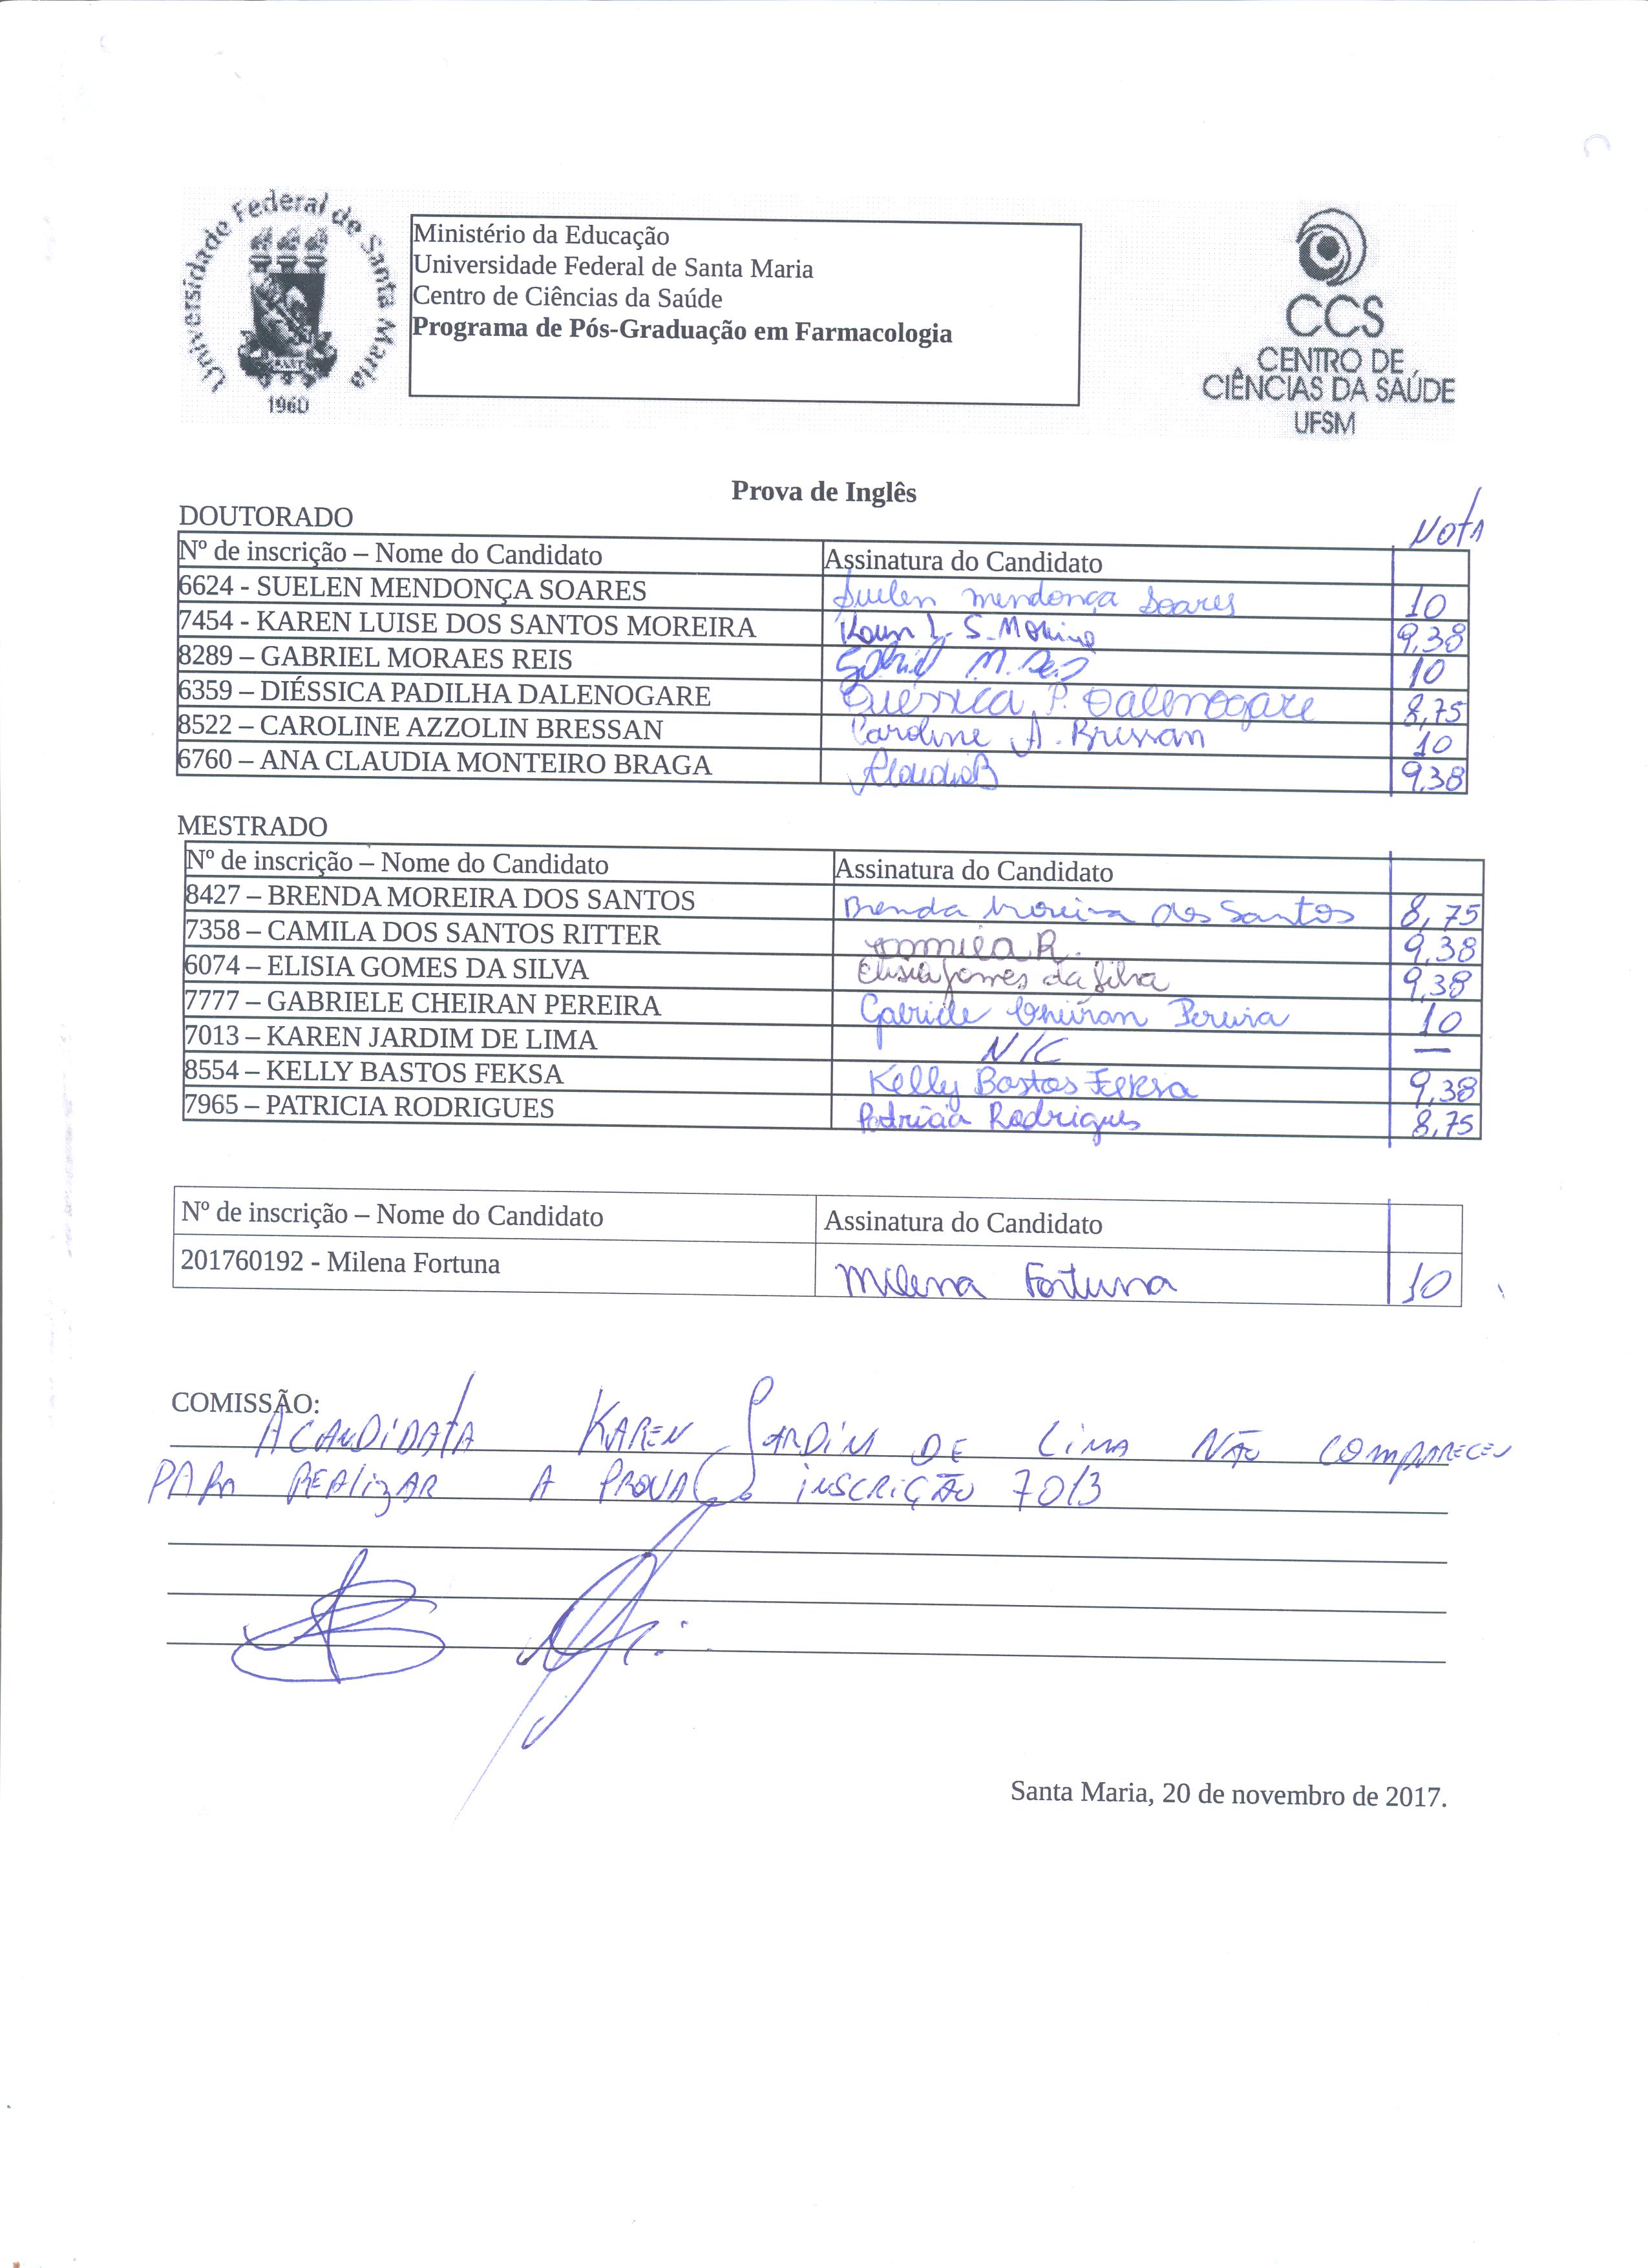 Universidade Federal de Santa Maria
1960
Ministério da Educação
Universidade Federal de Santa Maria
Centro de Ciências da Saúde
Programa de Pós-Graduação em Farmacologia
CCS
CENTRO DE
CIÊNCIAS DA SAÚDE
UFSM
Prova de Inglês
DOUTORADO
NOTA
Nº de inscrição – Nome do Candidato Assinatura do Candidato
6624 - SUELEN MENDONÇA SOARES Suelen Mendonça Soares 10
7454 - KAREN LUISE DOS SANTOS MOREIRA Karen L. S. Moreira 9,38
8289 – GABRIEL MORAES REIS Gabriel M. Reis 10
6359 – DIÉSSICA PADILHA DALENOGARE Diéssica P. Dalenogare 8,75
8522 – CAROLINE AZZOLIN BRESSAN Caroline A. Bressan 10
6760 – ANA CLAUDIA MONTEIRO BRAGA 9,38
MESTRADO
Nº de inscrição – Nome do Candidato Assinatura do Candidato
8427 – BRENDA MOREIRA DOS SANTOS Brenda Moreira dos Santos 8,75
7358 – CAMILA DOS SANTOS RITTER Camila R. 9,38
6074 – ELISIA GOMES DA SILVA Elisia Gomes da Silva 9,38
7777 – GABRIELE CHEIRAN PEREIRA Gabriele Cheiran Pereira 10
7013 – KAREN JARDIM DE LIMA N/C —
8554 – KELLY BASTOS FEKSA Kelly Bastos Feksa 9,38
7965 – PATRICIA RODRIGUES Patricia Rodrigues 8,75
Nº de inscrição – Nome do Candidato Assinatura do Candidato
201760192 - Milena Fortuna Milena Fortuna 10
COMISSÃO:
A CANDIDATA KAREN JARDIM DE LIMA NÃO COMPARECEU
PARA REALIZAR A PROVA INSCRIÇÃO 7013
Santa Maria, 20 de novembro de 2017.